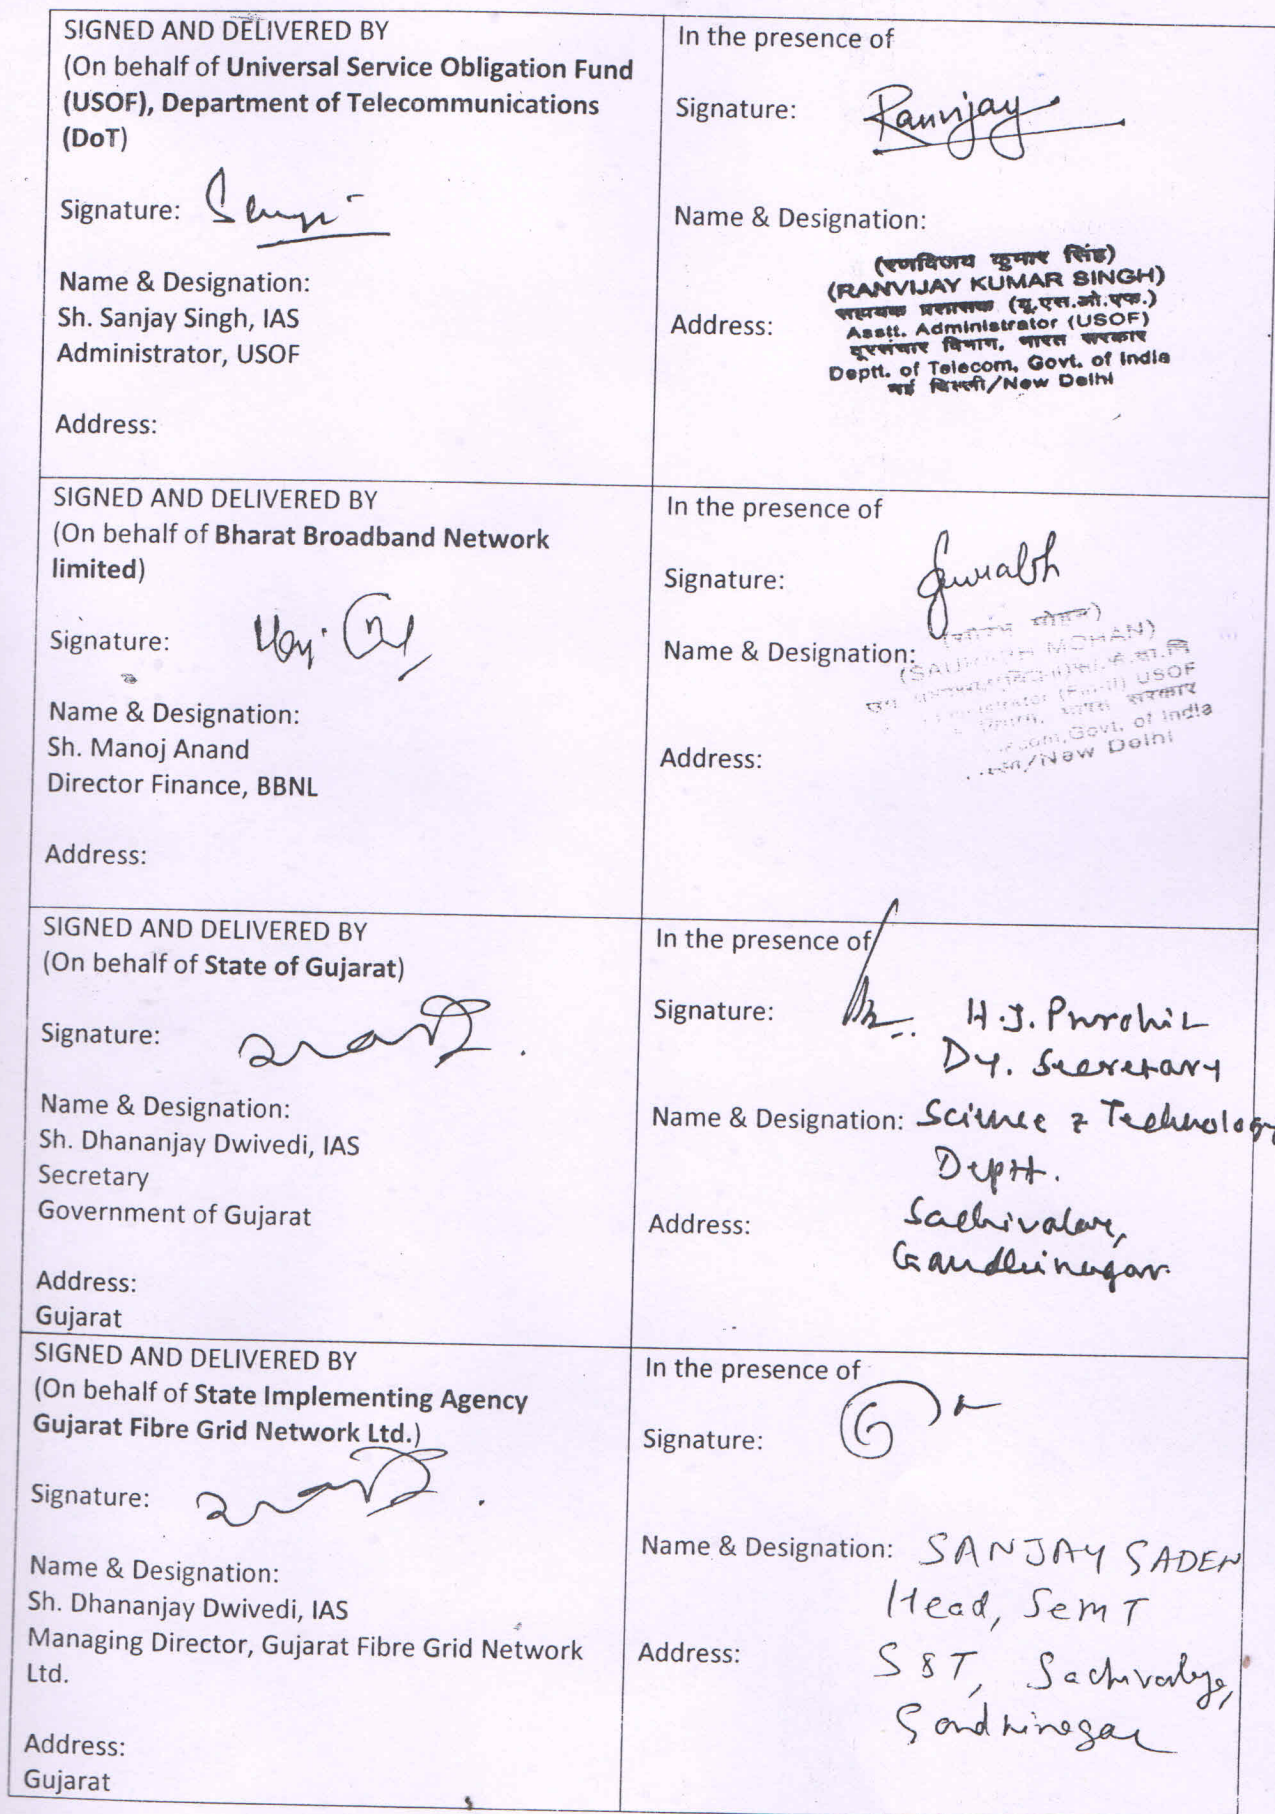 SIGNED AND DELIVERED BY
(On behalf of Universal Service Obligation Fund
(USOF), Department of Telecommunications
(DoT)
Signature:
Name & Designation:
Sh. Sanjay Singh, IAS
Administrator, USOF
Address:
In the presence of
Signature: Ranvijay
Name & Designation:
(रणविजय कुमार सिंह)
(RANVIJAY KUMAR SINGH)
सहायक प्रशासक (यू.एस.ओ.एफ.)
Asstt. Administrator (USOF)
Address:
दूरसंचार विभाग, भारत सरकार
Deptt. of Telecom, Govt. of India
नई दिल्ली/New Delhi
SIGNED AND DELIVERED BY
(On behalf of Bharat Broadband Network
limited)
Signature:
Name & Designation:
Sh. Manoj Anand
Director Finance, BBNL
Address:
In the presence of
Signature: Saurabh
Name & Designation:
(SAURABH MOHAN)
(Fin-II) USOF
सरकार
Govt. of India
/New Delhi
Address:
SIGNED AND DELIVERED BY
(On behalf of State of Gujarat)
Signature:
Name & Designation:
Sh. Dhananjay Dwivedi, IAS
Secretary
Government of Gujarat
Address:
Gujarat
In the presence of
Signature: H.J. Purohit
Dy. Secretary
Name & Designation: Science & Technology
Deptt.
Address: Sachivalay,
Gandhinagar.
SIGNED AND DELIVERED BY
(On behalf of State Implementing Agency
Gujarat Fibre Grid Network Ltd.)
Signature:
Name & Designation:
Sh. Dhananjay Dwivedi, IAS
Managing Director, Gujarat Fibre Grid Network
Ltd.
Address:
Gujarat
In the presence of
Signature:
Name & Designation: SANJAY SADEN
Head, SemT
Address: S&T, Sachivalye,
Gandhinagar